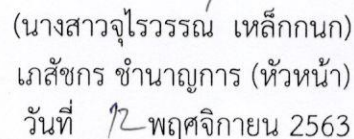 (นางสาวจุไรวรรณ เหล็กกนก)
เภสัชกร ชำนาญการ (หัวหน้า)
วันที่ 12 พฤศจิกายน 2563